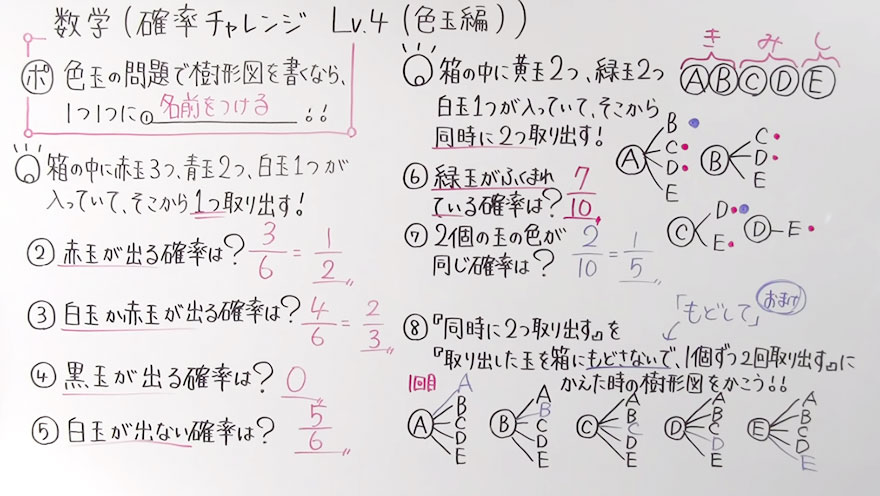 数学(確率チャレンジ Lv.4(色玉編))
ポ 色玉の問題で樹形図を書くなら、
1つ1つに①名前をつける!!
箱の中に赤玉3つ、青玉2つ、白玉1つが
入っていて、そこから1つ取り出す!
② 赤玉が出る確率は? 3/6 = 1/2
③ 白玉か赤玉が出る確率は? 4/6 = 2/3
④ 黒玉が出る確率は? 0
⑤ 白玉が出ない確率は? 5/6
箱の中に黄玉2つ、緑玉2つ
白玉1つが入っていて、そこから
同時に2つ取り出す!
き み し
A B C D E
A B C D E
B C D E
C D E
D E
⑥ 緑玉がふくまれ
ている確率は? 7/10
⑦ 2個の玉の色が
同じ確率は? 2/10 = 1/5
「もどして」 おまけ
⑧『同時に2つ取り出す。』を
『取り出した玉を箱にもどさないで、1個ずつ2回取出す。』に
かえた時の樹形図をかこう!!
1回目
A A B C D E
B A B C D E
C A B C D E
D A B C D E
E A B C D E